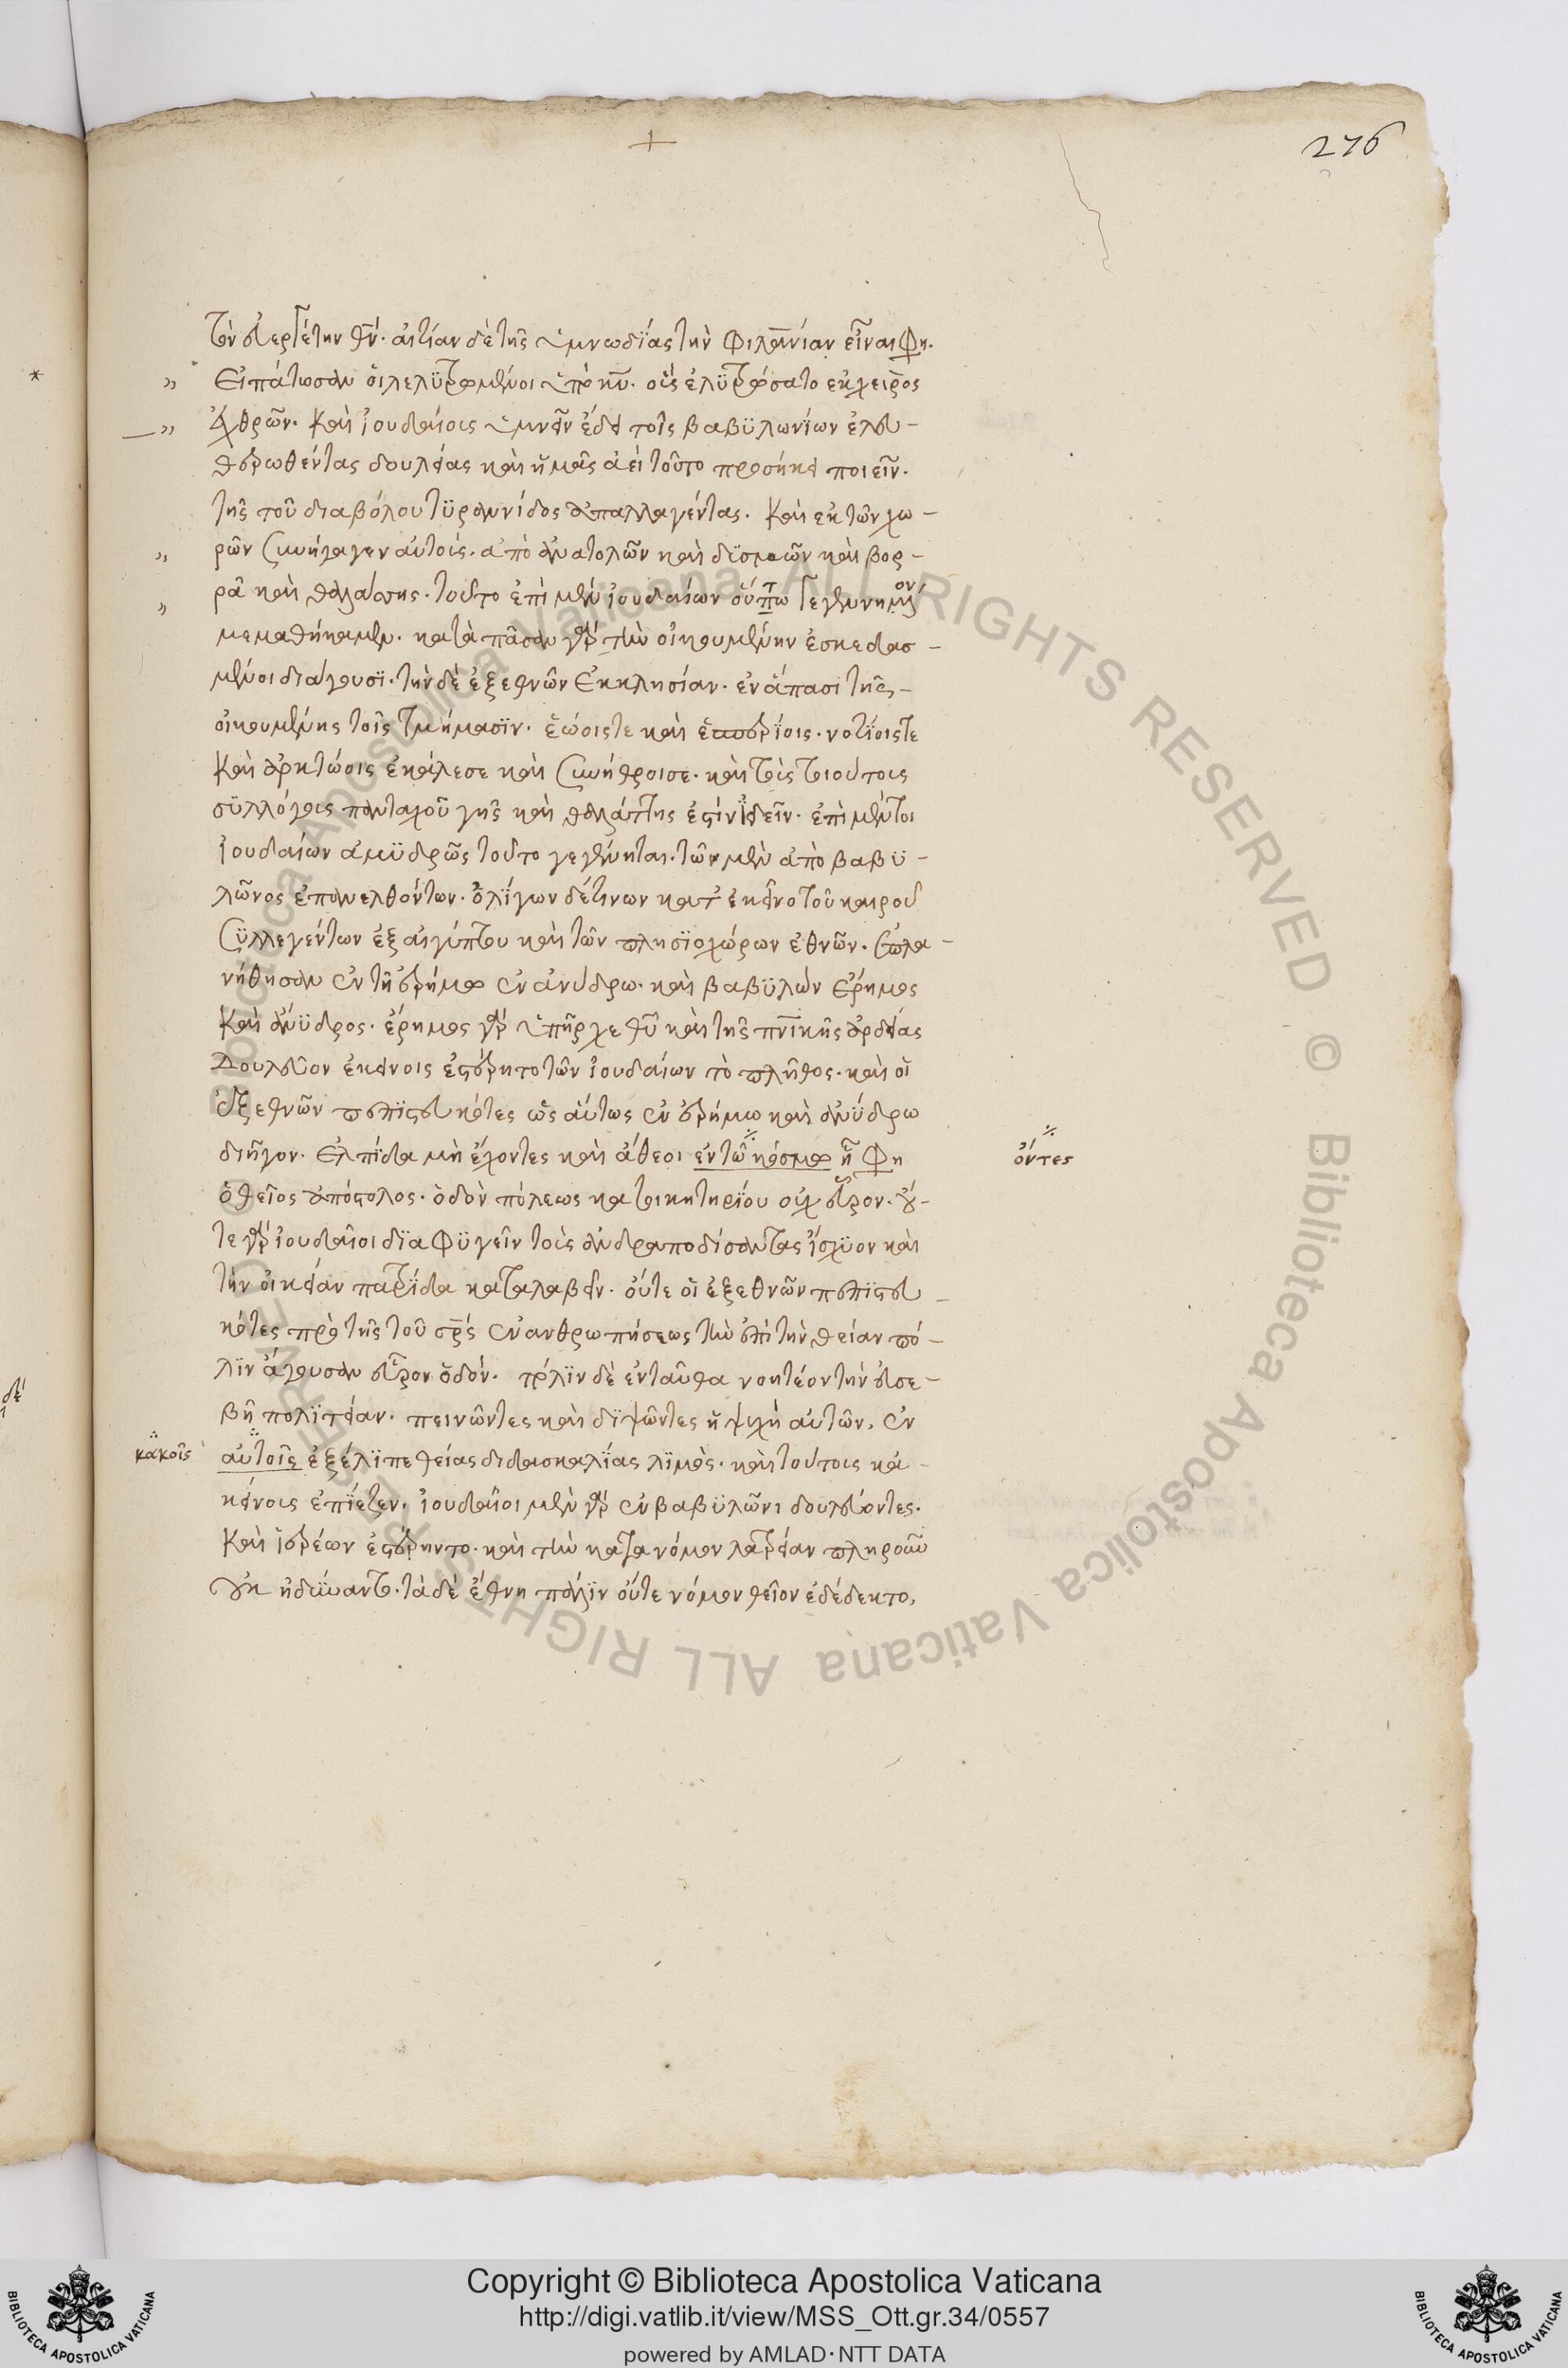 276
τὸν εὐεργέτην θν̅. αἰτίαν δὲ τῆς ὑμνωδΐας τὴν φιλανίαν εἶναι φη.
Εἰπάτωσαν οἱ λελϋτρωμένοι ὑπὸ κυ̅. οὓς ἐλϋτρώσατο εκ χειρὸς
ἐχθρῶν. Καὶ ἰουδαίοις ὑμνεῖν ἔδει τοῖς βαβϋλωνίων ἐλευ-
θερωθέντας δουλείας καὶ ἡμᾶς ἀεὶ τοῦτο προσήκει ποιεῖν.
τῆς τοῦ διαβόλου τϋραννίδος ἀπαλλαγέντας. Καὶ εκ τῶν χω-
ρῶν συνήγαγεν αὐτοὺς. απὸ ἀνατολῶν καὶ δϋσμῶν καὶ βορ-
ρᾶ καὶ θαλάσσης. τοῦτο ἐπὶ μὲν ἰουδαίων οὔπω γεγενημένον
μεμαθήκαμεν. κατὰ πᾶσαν γὰρ τὴν οἰκουμένην ἐσκεδασ-
μένοι διάγουσϊ. τὴν δὲ ἐξ εθνῶν Εκκλησίαν. εν ἅπασι τῆς-
οἰκουμένης τοῖς τμήμασϊν. ἑώοις τε καὶ ἑσπερΐοις. νοτΐοις τε
Καὶ ἀρκτώοις ἐκάλεσε καὶ συνήθροισε. καὶ τοὺς τοιούτους
σϋλλόγους πανταχοῦ γῆς καὶ θαλάττης ἐστὶν ἰδεῖν. ἐπὶ μέντοι
ἰουδαίων ἀμϋδρῶς τοῦτο γεγένηται. τῶν μὲν ἀπὸ βαβϋ-
λῶνος ἐπανελθόντων. ὀλΐγων δέ τινων κατ' ἐκεῖνο τοῦ καιροῦ
Σϋλλεγέντων ἐξ αιγύπτου καὶ τῶν πλησϊοχώρων ἐθνῶν. Επλα-
νήθησαν ἐν τῆ ἐρήμω ἐν ἀνύδρω. καὶ βαβϋλὼν Ερήμος
Καὶ ἄνϋδρος. ἔρημος γὰρ ὑπῆρχε θυ̅ καὶ τῆς πνικῆς ἀρδείας
Δουλεῦον ἐκείνοις ἐστέρητο τῶν ἰουδαίων τὸ πλῆθος. καὶ οἱ
ἐξ εθνῶν πεπϊστευκότες ὡς αὔτως ἐν ἐρήμω καὶ ἀνύδρω
διῆγον. Ελπΐδα μὴ ἔχοντες καὶ ἄθεοι εν τῶ κόσμω ἧ φη
ὄντες
ὁ θεῖος ἀπόστολος. ὁδὸν πόλεως κατοικητηρΐου οὐχ εὗρον. οὔ-
τε γὰρ ἰουδαῖοι δϊαφϋγεῖν τοὺς ἀνδραποδίσαντας ἴσχϋον καὶ
τὴν οἰκείαν πατρΐδα καταλαβεῖν. οὔτε οἱ ἐξ εθνῶν πεπϊστευ-
κότες πρὸ τῆς τοῦ σρ̅ς ἐνανθρωπήσεως τὴν ἐπὶ τὴν θείαν πό-
λϊν ἄγουσαν εὗρον ὁδόν. πόλϊν δὲ ἐνταῦθα νοητέον τὴν εὐσε-
βῆ πολϊτείαν. πεινῶντες καὶ δϊψῶντες ἡ ψυχὴ αὐτῶν. ἐν
κἀκοῖς
αὐτοῖς ἐξέλϊπε θείας διδασκαλΐας λϊμὸς. καὶ τούτους κἀ-
κείνους ἐπΐεζεν. ἰουδαῖοι μὲν γὰρ ἐν βαβϋλῶνι δουλεύοντες.
Καὶ ἱερέων ἐστέρηντο. καὶ τὴν κατα νόμον λατρείαν πληροῦν
οὐκ ἠδύναντο. τὰ δὲ ἔθνη πάλϊν οὔτε νόμον θεῖον ἐδέδεκτο,
Copyright © Biblioteca Apostolica Vaticana
http://digi.vatlib.it/view/MSS_Ott.gr.34/0557
powered by AMLAD·NTT DATA